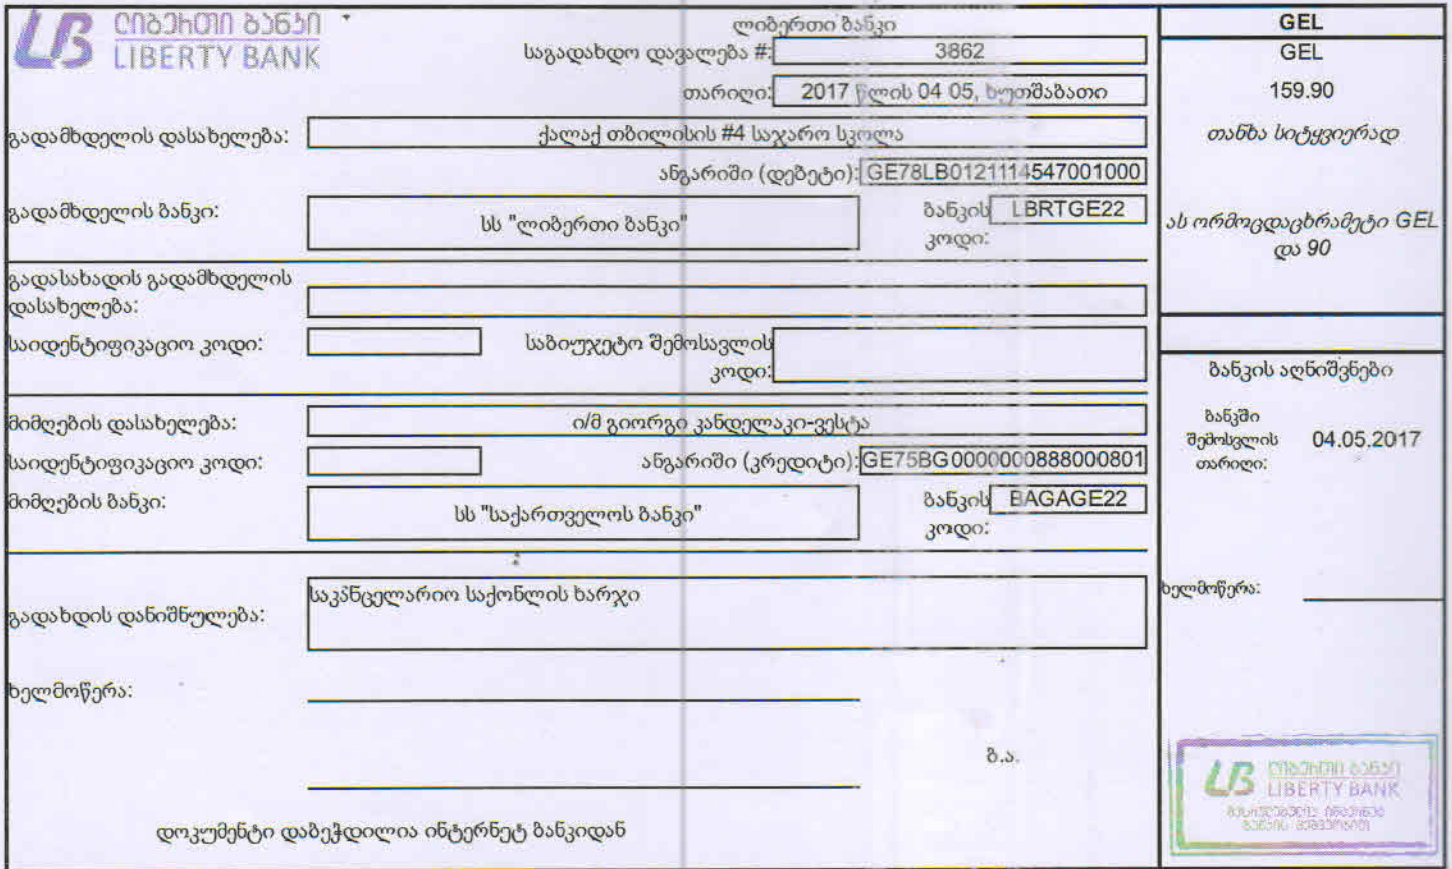 ლიბერთი ბანკი
LIBERTY BANK
ლიბერთი ბანკი
საგადახდო დავალება #: 3862
თარიღი: 2017 წლის 04 05, ხუთშაბათი
გადამხდელის დასახელება: ქალაქ თბილისის #4 საჯარო სკოლა
ანგარიში (დებეტი): GE78LB0121114547001000
გადამხდელის ბანკი: სს "ლიბერთი ბანკი" ბანკის კოდი: LBRTGE22
გადასახადის გადამხდელის
დასახელება:
საიდენტიფიკაციო კოდი: საბიუჯეტო შემოსავლის
კოდი:
მიმღების დასახელება: ი/მ გიორგი კანდელაკი-ვესტა
საიდენტიფიკაციო კოდი: ანგარიში (კრედიტი): GE75BG0000000888000801
მიმღების ბანკი: სს "საქართველოს ბანკი" ბანკის კოდი: BAGAGE22
გადახდის დანიშნულება: საკანცელარიო საქონლის ხარჯი
ხელმოწერა:
ბ.ა.
დოკუმენტი დაბეჭდილია ინტერნეტ ბანკიდან
GEL
GEL
159.90
თანხა სიტყვიერად
ას ორმოცდაცხრამეტი GEL
და 90
ბანკის აღნიშვნები
ბანკში
შემოსვლის
თარიღი:
04.05.2017
ხელმოწერა:
ლიბერთი ბანკი
LIBERTY BANK
შესრულებულია ინტერნეტ
ბანკის მეშვეობით